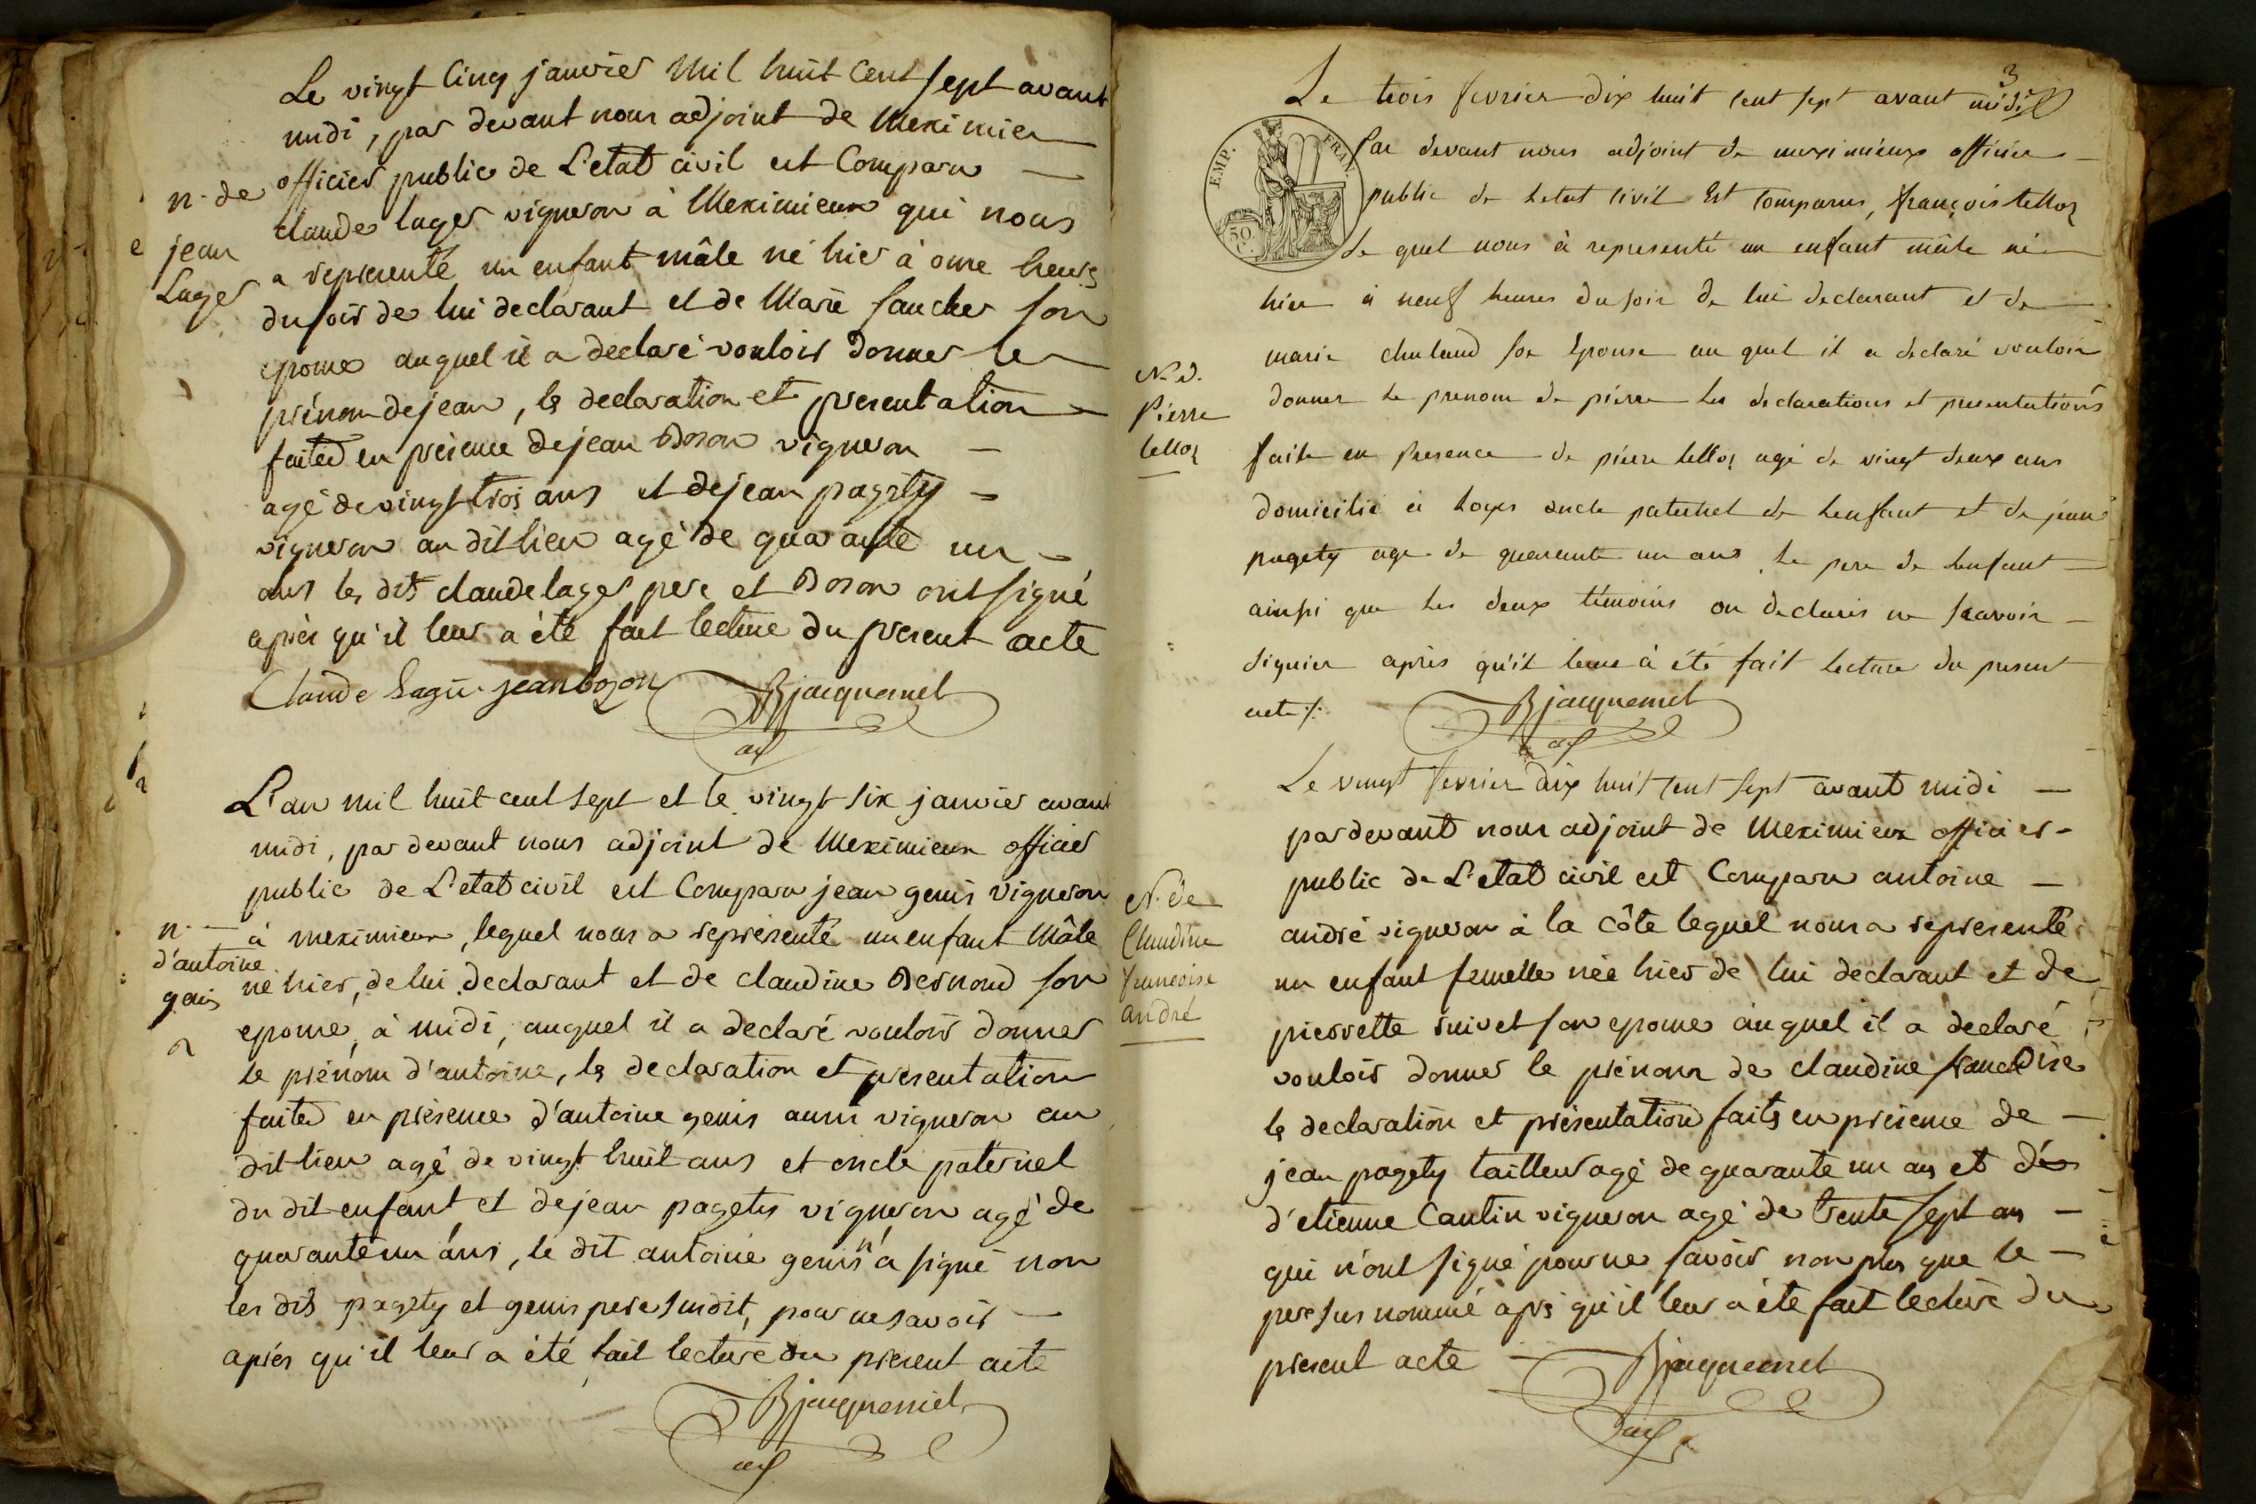 Le vingt cinq janvier mil huit cent sept avant
midi, par devant nous adjoint de Meximieu
officier public de L'etat civil est Comparu
n. de
jean
Lager
claude lager vigneron à Meximieux qui nous
a representé un enfant mâle né hier à onze heures
du soir de lui declarant et de Marie faucher son
epouse auquel il a declaré vouloir donner le
prénom de jean, les declaration et presentation
faites en présence de jean Bozon vigneron
agé de vingt trois ans et de jean pagety
vigneron au dit lieu agé de quarante un
ans les dits claude lager pere et Bozon ont signé
après qu'il leur a été fait lecture du present acte
Claude Lagie jean bozon Bjacquemet
adj
L'an mil huit cent sept et le vingt six janvier avant
midi, par devant nous adjoint de Meximieux officier
public de L'etat civil est Comparu jean genis vigneron
n.
d'antoine
genis
à meximieux, lequel nous a représenté un enfant Mâle
né hier, de lui declarant et de claudine Bernoud son
epouse, à midi, auquel il a declaré vouloir donner
le prénom d'antoine, les declaration et presentation
faites en présence d'antoine genis aussi vigneron au
dit lieu agé de vingt huit ans et oncle paternel
du dit enfant et de jean pagety vigneron agé de
quarante un ans, le dit antoine genis n'a signé non
les dits pagety et genis pere susdit, pour ne savoir
après qu'il leur a été fait lecture du present acte
Bjacquemet
adj
3
Le trois fevrier dix huit cent sept avant midi
EMP. FRAN.
50 C.
Par devant nous adjoint de meximieux officier
public de Letat civil Est Comparus, françois telloz
Le quel nous à representé un enfant mâle né
hier à neuf heures du soir de lui declarant et de
marie chaland son Epouse au quel il a declaré vouloir
N. d.
Pierre
telloz
donner le prenom de pierre les declarations et presentations
faite en Presence de pierre telloz agé de vingt deux ans
domicilié à Loyes oncle paternel de Lenfant et de jean
pagety age de quarente un ans, Le pere de Lenfant
ainsi que les deux témoins on declarés ne scavoir
Signier après qu'il leur à été fait lecture du present
acte ./. Bjacquemet
adj
Le vingt fevrier dix huit cent sept avant midi
par devant nous adjoint de Meximieux officier
public de L'etat civil est Comparu antoine
N. de
Claudine
francoise
andré
andré vigneron à la côte lequel nous a representé
un enfant femelle née hier de lui declarant et de
pierrette suivet son epouse auquel il a declaré
vouloir donner le prénom de claudine francoise
les declaration et présentation faites en présence de
jean pagety tailleur agé de quarante un ans et de
d'etienne Cantin vigneron agé de trente sept ans
qui n'ont signé pour ne savoir non plus que le
pere sus nommé après qu'il leur a été fait lecture du
present acte Bjacquemet
adj